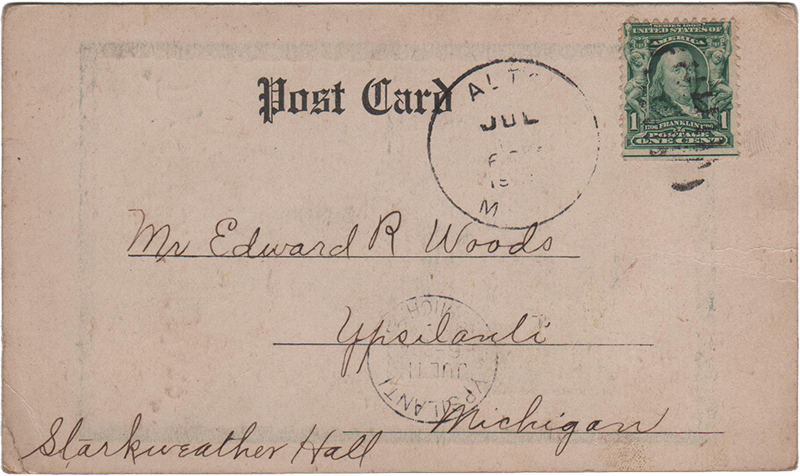 SERIES 1902
UNITED STATES OF
AMERICA
1 FRANKLIN 1
POSTAGE
ONE CENT
Post Card
JUL
M
Mr Edward R Woods
Ypsilanti
Michigan
Starkweather Hall
YPSILANTI
JUL 11
MICH